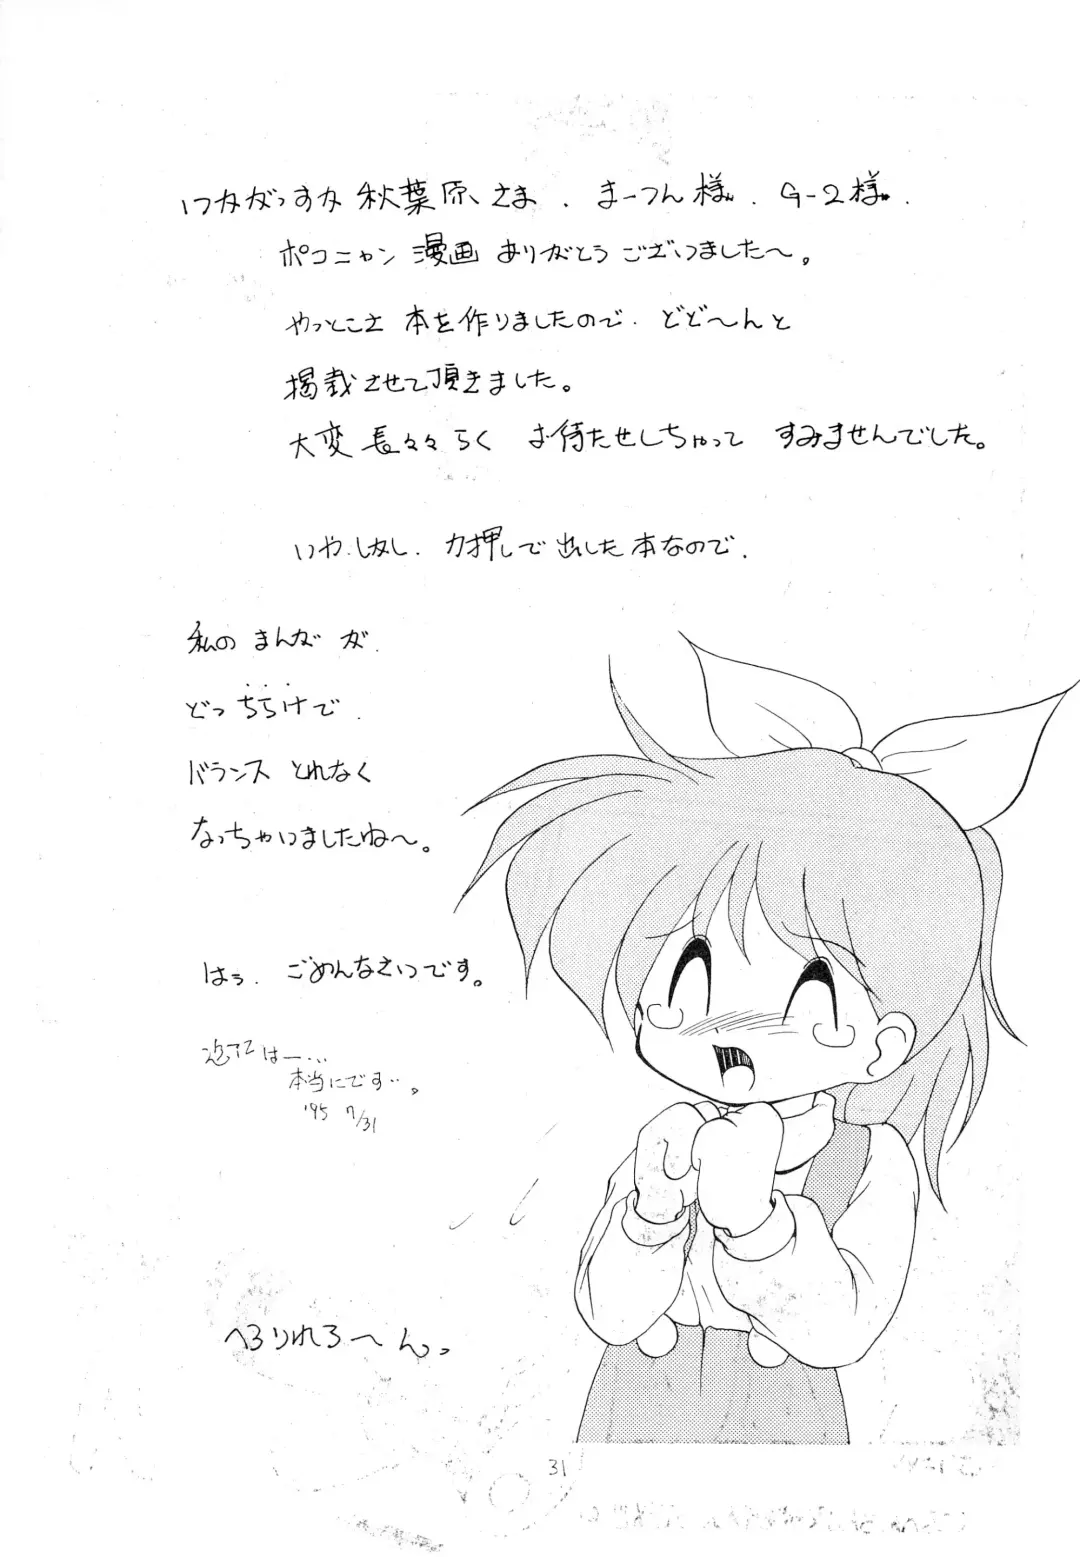 いながっすな 秋葉原さま、まーつん様、G-2様、
ポコニャン漫画 ありがとうございました〜。
やっとこさ 本を作りましたので、どど〜んと
掲載させて頂きました。
大変 長々々らく お待たせしちゃって すみませんでした。
いや、しかし、力押しで出した本なので、
私の まんが が、
どっちらけで、
バランス とれなく
なっちゃいましたね〜。
はぅ、ごめんなさいです。
はー…
本当にです…。
'95 7/31
へろりれろ〜んっ。
31